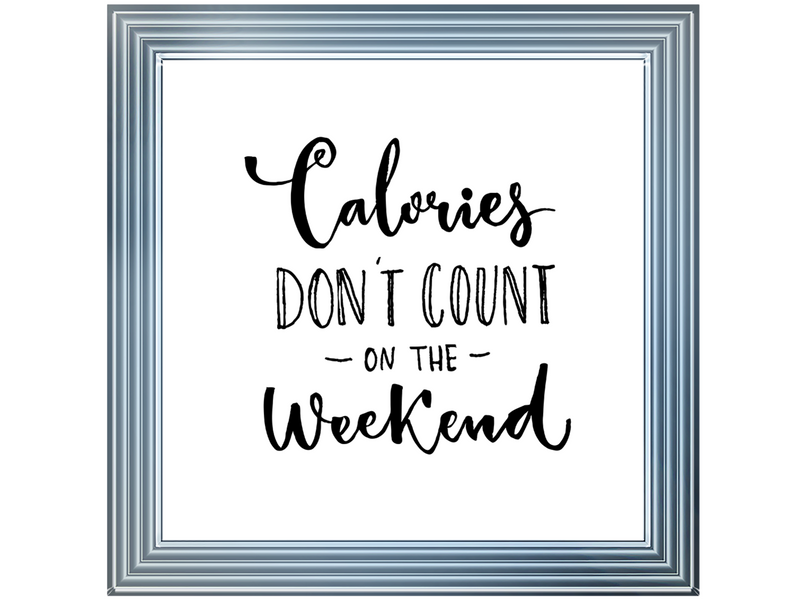 Calories
DON'T COUNT
— ON THE —
Weekend